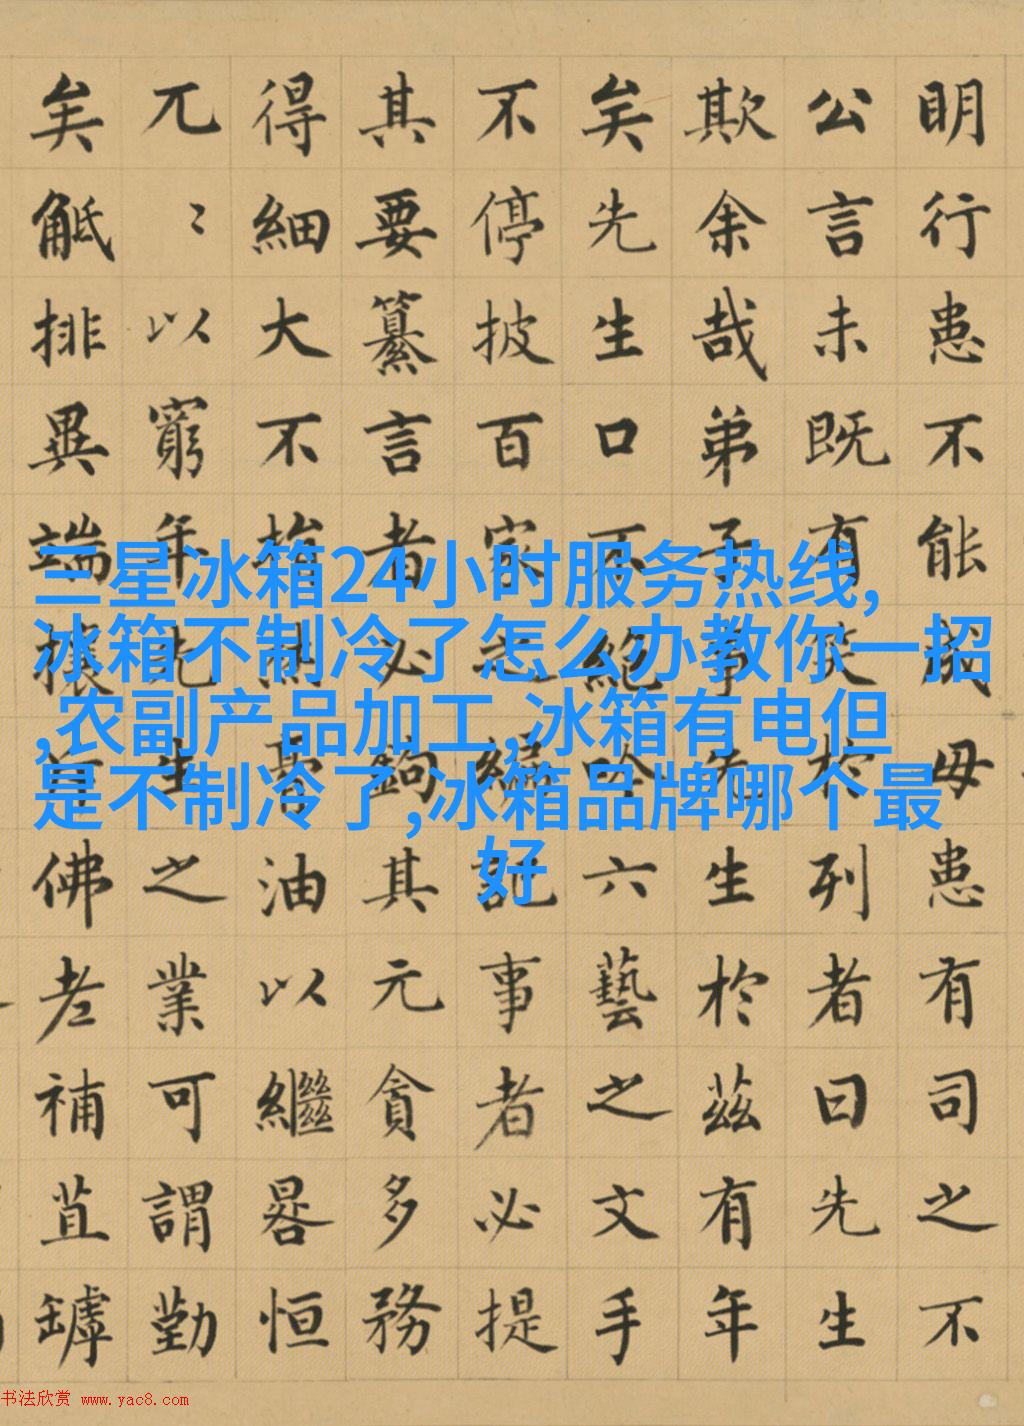 明行患不能成毋患有司之不
公言未既有笑於列者曰先生
欺余哉弟子事先生於茲有年
矣先生口不絕吟六藝之文手
不停披百家之編記事者必提
其要纂言者必鉤其元貪多務
得細大不捐焚膏油以繼晷恒
兀〻以窮年先生之業可謂勤
矣觝排異端攘斥佛老補苴罅
三星冰箱24小时服务热线,
冰箱不制冷了怎么办教你一招
,农副产品加工,冰箱有电但
是不制冷了,冰箱品牌哪个最
好
书法欣赏 www.yac8.com